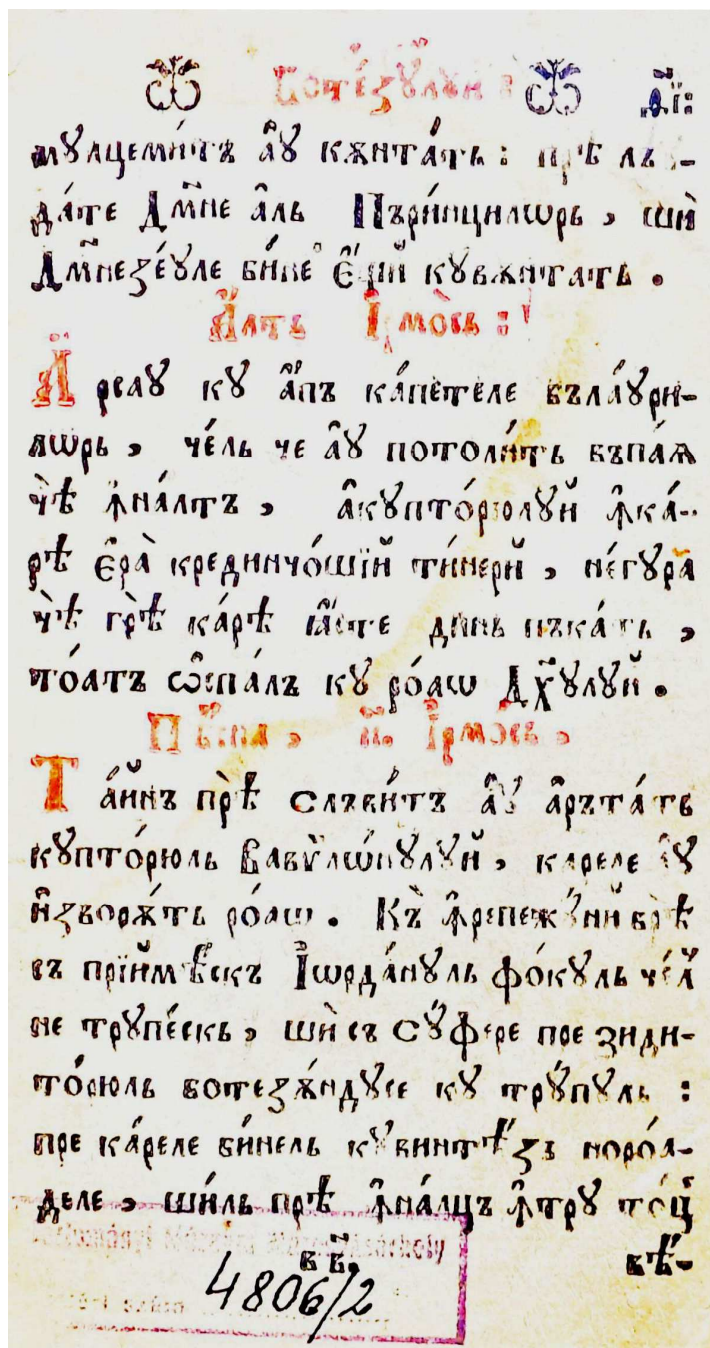 Ботезꙋ́лꙋи ді҃:
мꙋлцеми́тъ а҆ꙋ кѫнта́ть : прѣ лъ-
да́те Дм҃не а҆ль Пъри́нцилѡрь , шѝ
Дм҃незе́ꙋле би́не є҆́щй кꙋвѫнтать .
А҆́лть І҆рмо̀сь :
А҆́реаꙋ кꙋ а҆́пъ ка́петеле бъла́ꙋри-
лѡрь , че́ль че а҆ꙋ потоли́ть въпа́ѧ
чѐѣ ꙟ҆на́лтъ , а҆кꙋпто́рюлꙋй ꙟ҆ка́-
рѣ є҆ра̀ крединчо́шїй ти́нерй , не́гꙋра
чѐѣ грѣ̀ ка́рѣ ꙗ҆́сте динь пъка́ть ,
то́атъ ѡ҆спа́лъ кꙋ ро́аѡ Дх҃ꙋлꙋй .
Пѣ́снѧ , и҃. І҆рмо́сь ,
Та́йнъ прѣ̀ слъви́тъ а҆ꙋ а҆ръта́ть
кꙋпто́рюль Вавѷлѡ́нꙋлꙋй , кареле а҆ꙋ
и҆зворѫ́ть ро́аѡ . Къ̀ ꙟ҆репежꙋ́нй врѣ̀
съ прїймѣ́скъ І҆ѡрда́нꙋль фо́кꙋль че́л
не трꙋпе́скь , шѝ съ сꙋ́фере пре зиди-
то́рюль ботезѫ́ндꙋсе кꙋ трꙋ́пꙋль :
пре ка́реле би́нель кꙋвинтѣ́зъ норо́а-
деле , ши́ль прѣ ꙟ҆на́лцъ ꙟ҆трꙋ то́ц
в҃ вѣ́-
4806/2